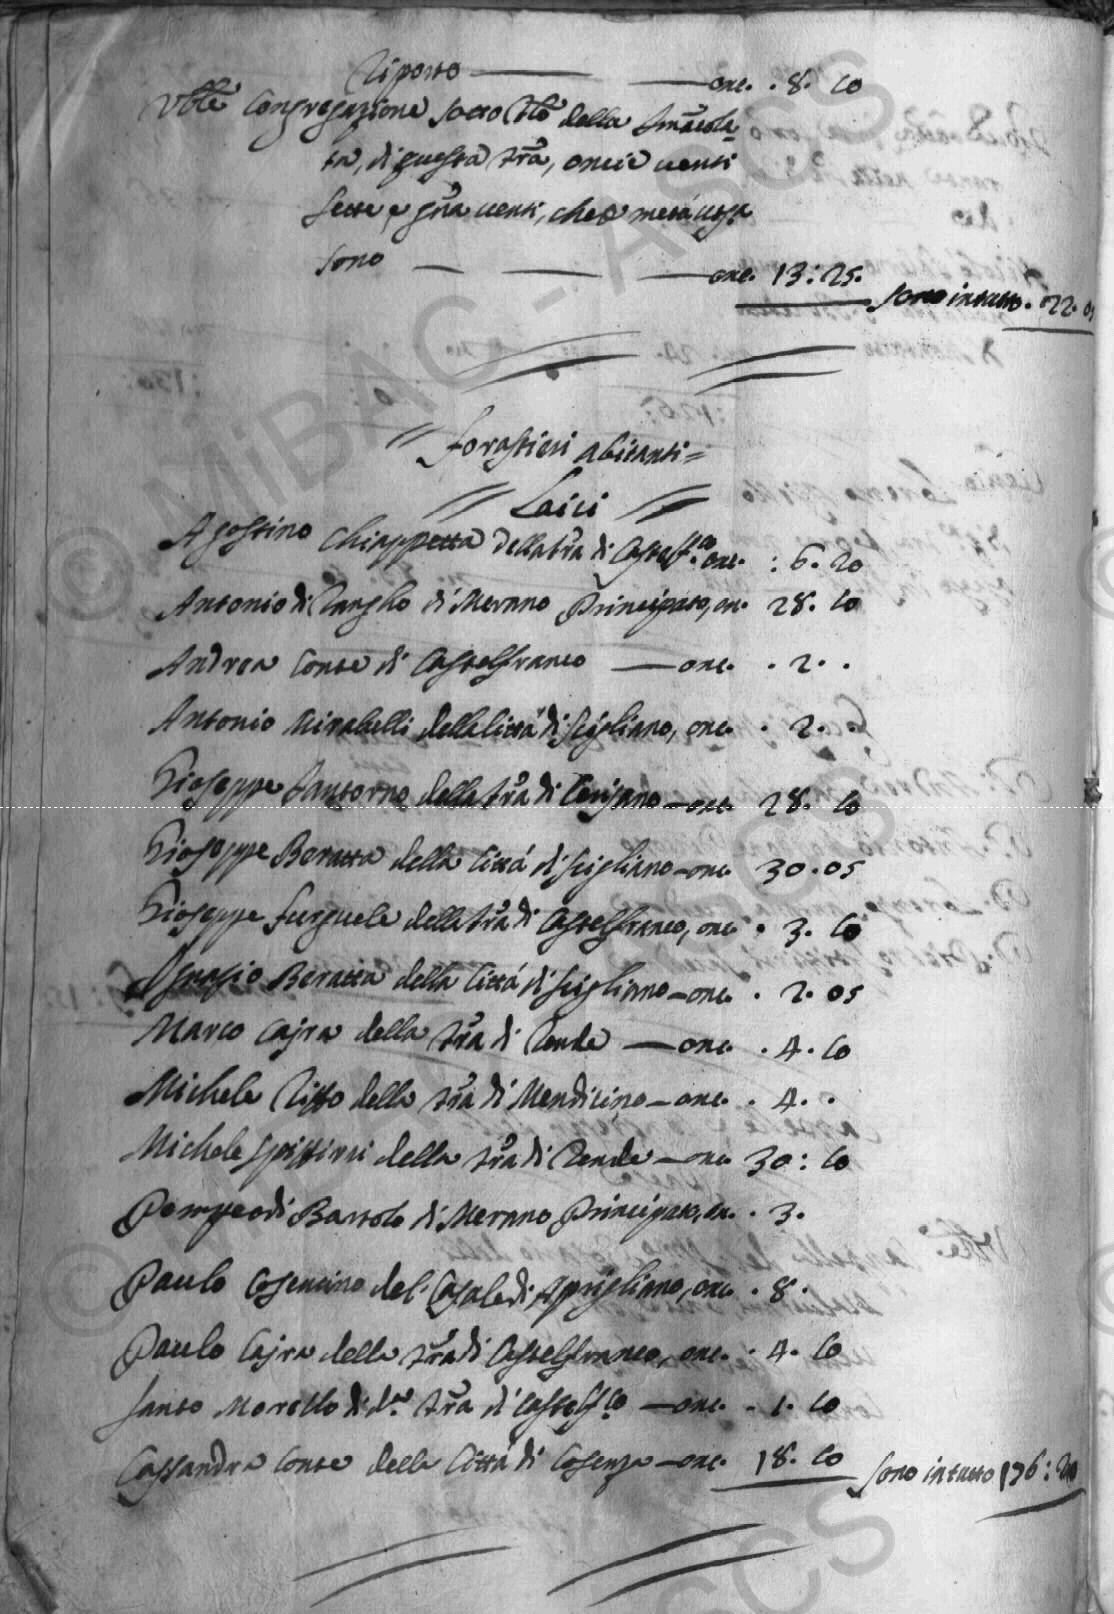 Riporto — — onc. . 8. 10
Vble Congregazione sotto tlo della Immacola=
ta, di questa trâ, oncie venti
sette, e grâ venti, che metà
sono — — — onc. 13:25.
sono in tutto. 22. 05
// Forastieri abitanti =
// Laici //
Agostino Chiappetta della trâ di Castelfco onc. : 6. 20
Antonio di di Merano Principato, on. 28. 10
Andrea Conte di Castelfranco — onc. . 2. .
Antonio Mirabelli della Città di Scigliano, onc. . 2. .
Gioseppe Santorno della trâ di Cerisano — onc. 28. 10
Gioseppe Beratta della Città di Scigliano — onc. 30.05
Gioseppe Furguele della trâ di Castelfranco, onc. . 3. 10
Ignazio Beratta della Città di Scigliano — onc. . 2. 05
Marco Cajra della trâ di Rende — onc. . 4. 10
Michele Rizzo della trâ di Mendicino — onc. . 4. .
Michele Spizzirri della trâ di Rende — onc. 30: 10
Pompeo di Bartolo di Merano Principato, on. . 3.
Paulo Cosentino del Casale di Aprigliano, onc. . 8.
Paulo Cajra della trâ di Castelfranco, onc. . 4. 10
Santo Morello di da trâ di Castelfco — onc. . 1. 10
Cassandra Conte della Città di Cosenza — onc. 18. 10
sono in tutto 176: 20
© MiBAC - ASCS
© MiBAC - ASCS